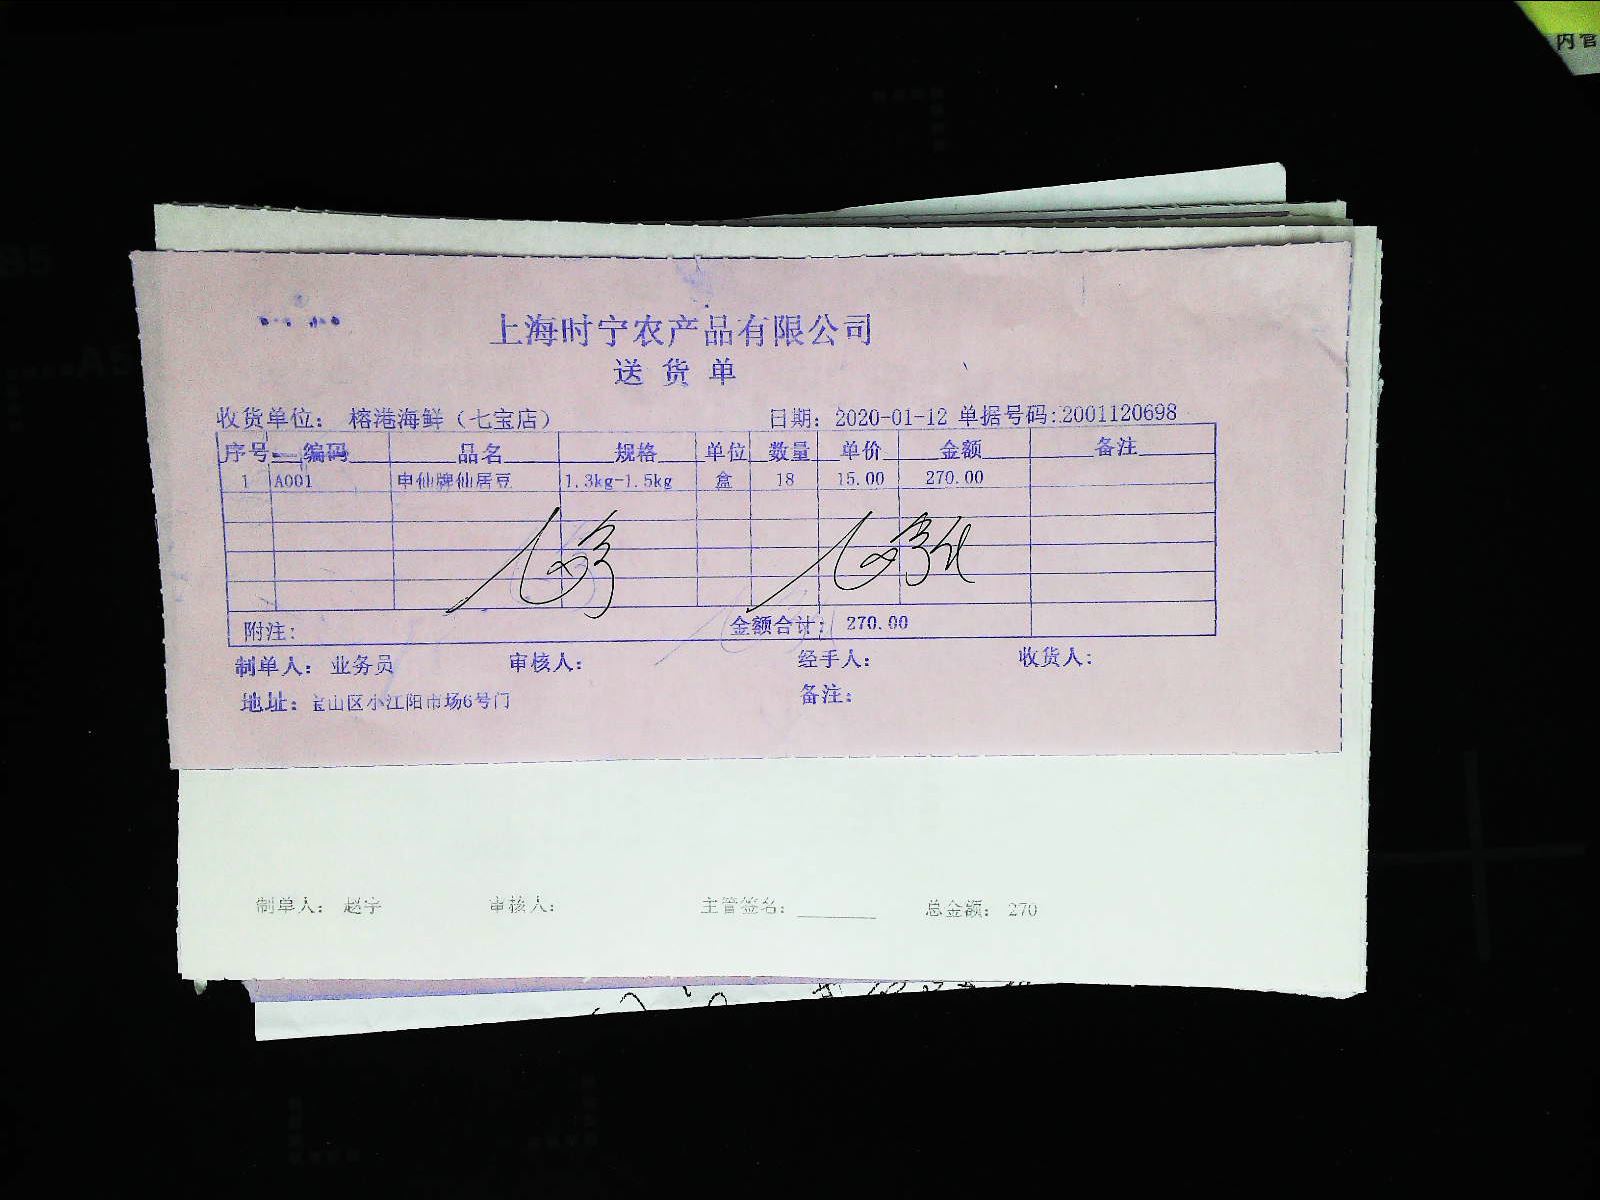 内管
上海时宁农产品有限公司
送货单
收货单位: 榕港海鲜（七宝店） 日期: 2020-01-12 单据号码:2001120698
序号 编码 品名 规格 单位 数量 单价 金额 备注
1 A001 申仙牌仙居豆 1.3kg-1.5kg 盒 18 15.00 270.00
附注: 金额合计: 270.00
制单人: 业务员 审核人: 经手人: 收货人:
地址: 宝山区小江阳市场6号门 备注:
制单人: 赵宇 审核人: 主管签名: 总金额: 270